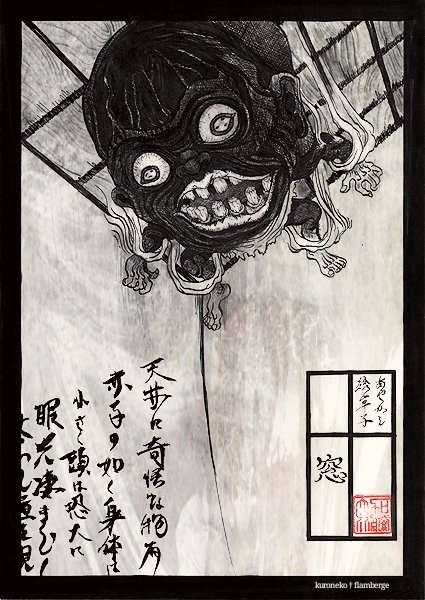 あやかし
絵草子
窓
天井に奇怪な物有
赤子の如く身体は
小さく頭は恐大に
眼光凄まじ
kuroneko † flamberge